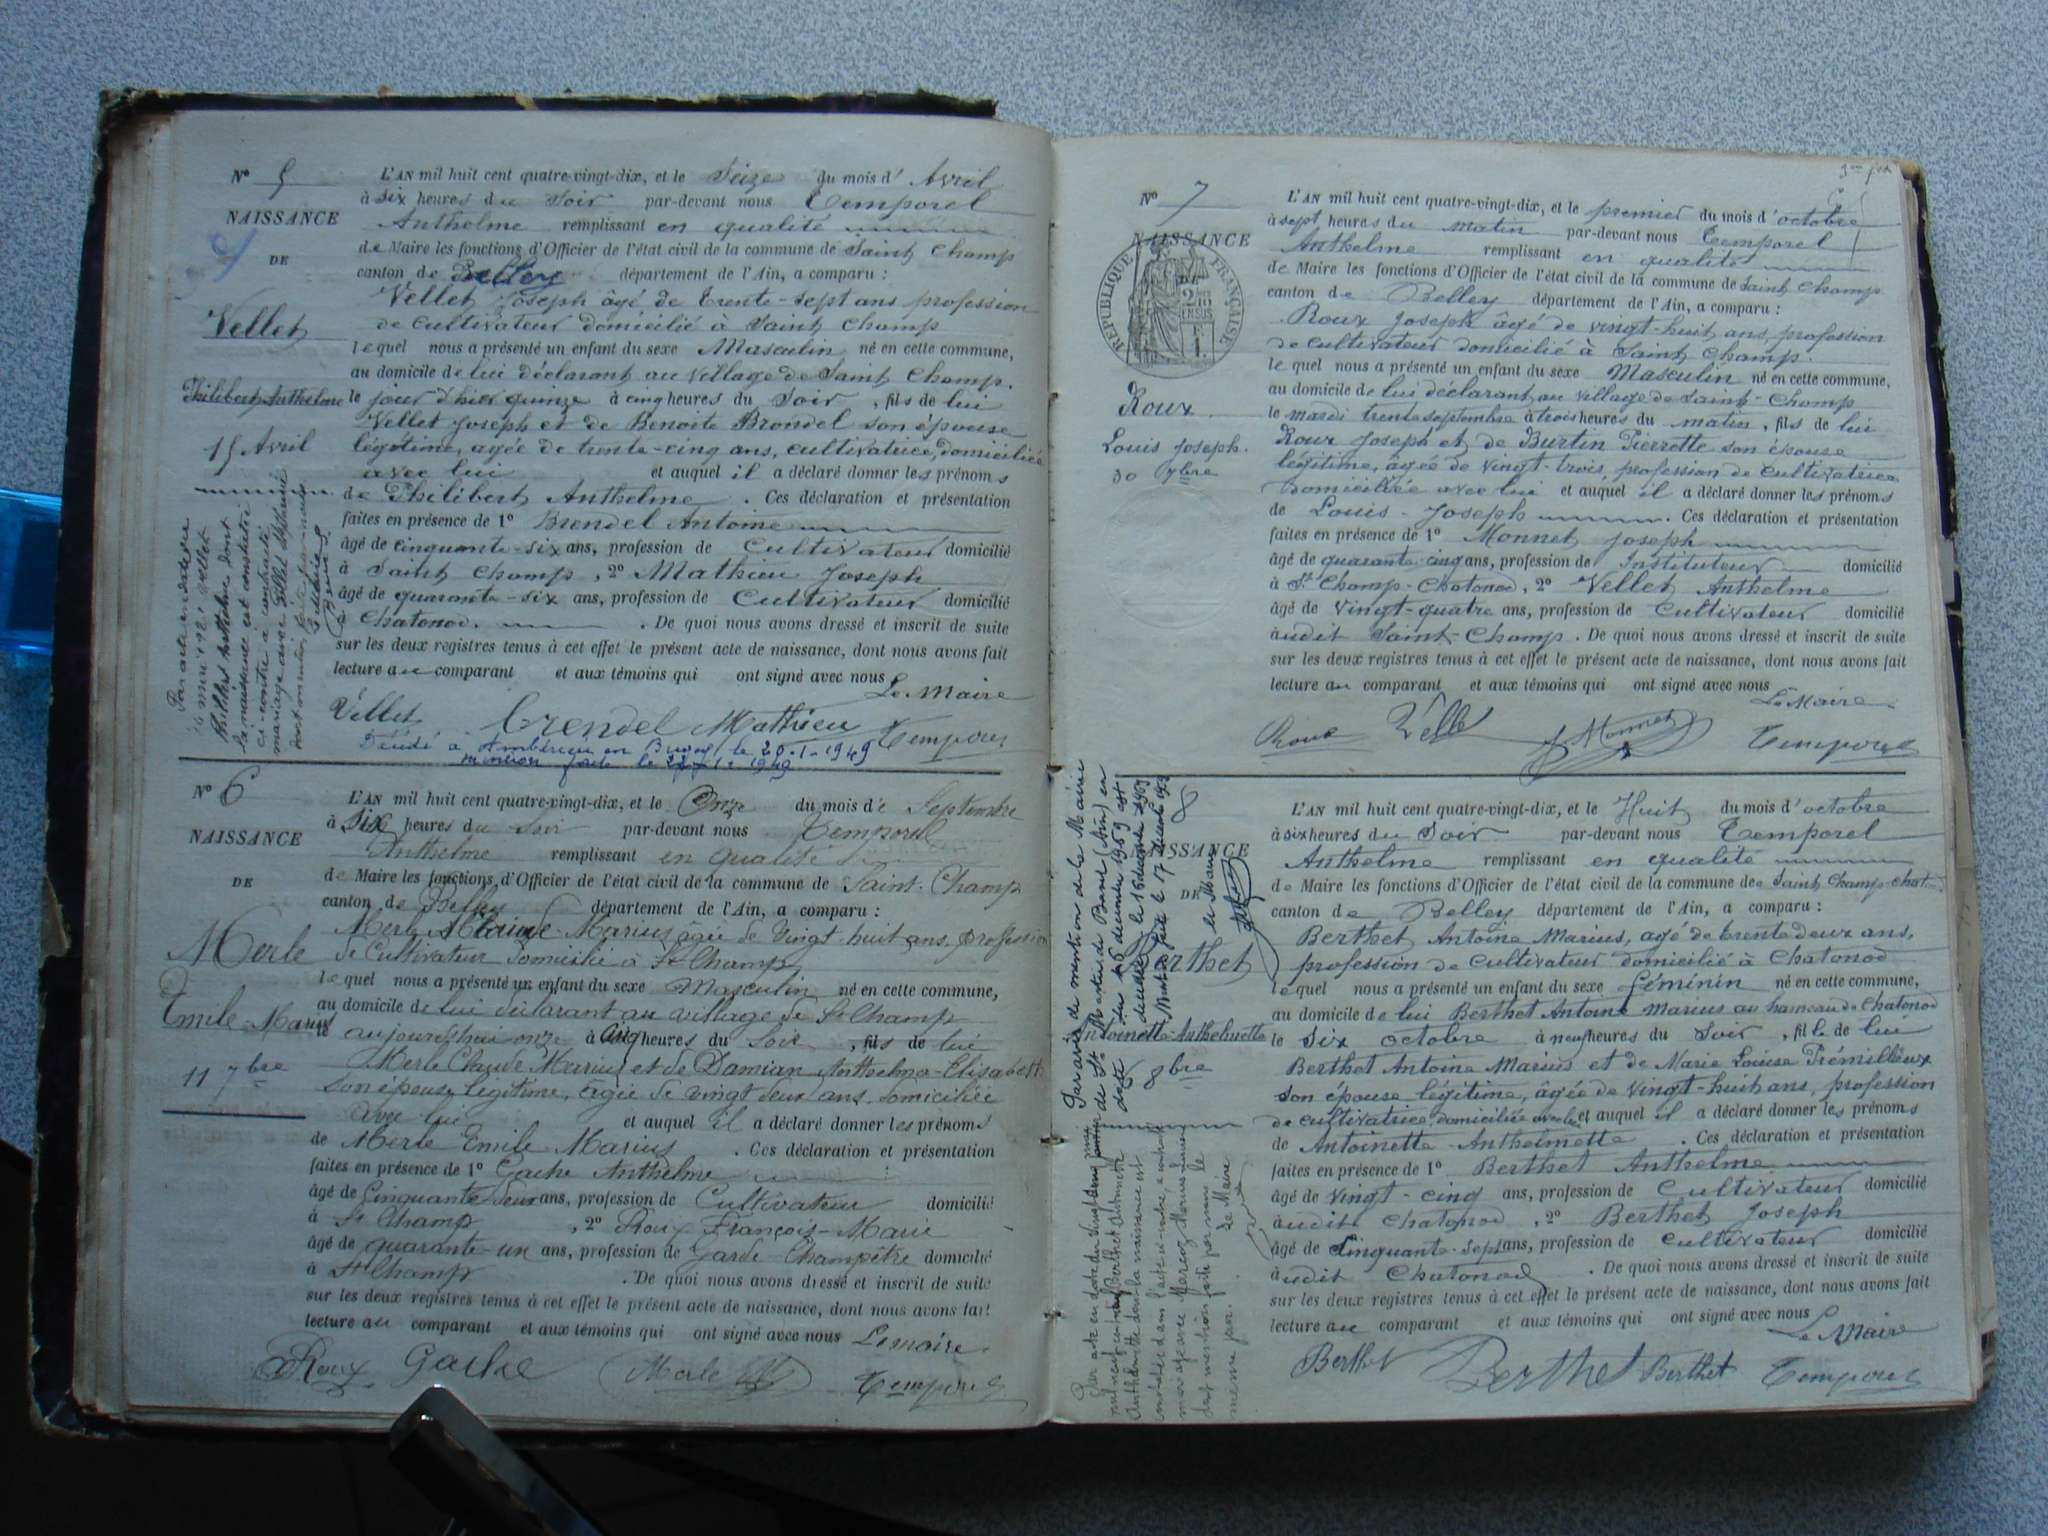 N° 5
NAISSANCE
DE
Vellet
Philibert Anthelme
15 Avril
L'AN mil huit cent quatre-vingt-dix, et le Seize du mois d'Avril
à six heures du Soir par-devant nous Temporel
Anthelme remplissant en qualité
de Maire les fonctions d'Officier de l'état civil de la commune de Saint Champ
canton de Belley département de l'Ain, a comparu :
Vellet Joseph âgé de trente-sept ans profession
de cultivateur domicilié à Saint Champ
lequel nous a présenté un enfant du sexe Masculin né en cette commune,
au domicile de lui déclarant au village de Saint Champ.
le jour d'hier quinze à cinq heures du Soir, fils de lui
Vellet Joseph et de Benoite Brondel son épouse
légitime, agée de trente-cinq ans, cultivatrice, domiciliée
avec lui et auquel il a déclaré donner les prénoms
de Philibert Anthelme. Ces déclaration et présentation
faites en présence de 1° Brendel Antoine
âgé de cinquante-six ans, profession de Cultivateur domicilié
à Saint Champ, 2° Mathieu Joseph
âgé de quarante-six ans, profession de Cultivateur domicilié
à Chatonod. De quoi nous avons dressé et inscrit de suite
sur les deux registres tenus à cet effet le présent acte de naissance, dont nous avons fait
lecture au comparant et aux témoins qui ont signé avec nous
Le Maire
Vellet Brendel Mathieu Temporel
Décédé à Ambérieu en Bugey le 20-1-1949
mention faite le 22-1-1949
Par acte en date du
Vellet
Philibert Anthelme dont
la naissance est constatée
ci-contre a contracté
mariage avec
N° 6
NAISSANCE
DE
Merle
Emile-Marius
11 7bre
L'AN mil huit cent quatre-vingt-dix, et le Onze du mois de Septembre
à Six heures du Soir par-devant nous Temporel
Anthelme remplissant en qualité
de Maire les fonctions d'Officier de l'état civil de la commune de Saint-Champ
canton de Belley département de l'Ain, a comparu :
Merle Claude Marius agée de Vingt huit ans, profession
de Cultivateur domicilié à St Champ
lequel nous a présenté un enfant du sexe Masculin né en cette commune,
au domicile de lui déclarant au village de St Champ
le aujourd'hui onze à cinq heures du Soir, fils de lui
Merle Claude Marius et de Damian Anthelma-Elisabeth
Son épouse légitime, âgée de vingt deux ans domiciliée
avec lui et auquel il a déclaré donner les prénoms
de Merle Emile Marius. Ces déclaration et présentation
faites en présence de 1° Gache Anthelme
âgé de Cinquante deux ans, profession de Cultivateur domicilié
à St Champ, 2° Roux François-Marie
âgé de quarante-un ans, profession de Garde Champêtre domicilié
à St Champ. De quoi nous avons dressé et inscrit de suite
sur les deux registres tenus à cet effet le présent acte de naissance, dont nous avons fait
lecture au comparant et aux témoins qui ont signé avec nous Le maire
Roux Gache Merle Temporel
N° 7
NAISSANCE
RÉPUBLIQUE FRANÇAISE
Roux
Louis Joseph.
30 7bre
L'AN mil huit cent quatre-vingt-dix, et le premier du mois d'octobre
à sept heures du matin par-devant nous Temporel
Anthelme remplissant en qualité
de Maire les fonctions d'Officier de l'état civil de la commune de Saint Champ
canton de Belley département de l'Ain, a comparu :
Roux Joseph âgé de vingt-huit ans, profession
de cultivateur domicilié à Saint Champ.
lequel nous a présenté un enfant du sexe Masculin né en cette commune,
au domicile de lui déclarant au village de Saint-Champ
le mardi trente septembre à trois heures du matin, fils de lui
Roux Joseph et de Burtin Pierrette son épouse
légitime, âgée de vingt-trois profession de cultivatrice
domiciliée avec lui et auquel il a déclaré donner les prénoms
de Louis-Joseph. Ces déclaration et présentation
faites en présence de 1° Monnet Joseph
âgé de quarante-cinq ans, profession de Instituteur domicilié
à St Champ-Chatonod, 2° Vellet Anthelme
âgé de vingt-quatre ans, profession de Cultivateur domicilié
à udit Saint-Champ. De quoi nous avons dressé et inscrit de suite
sur les deux registres tenus à cet effet le présent acte de naissance, dont nous avons fait
lecture au comparant et aux témoins qui ont signé avec nous
Le Maire
Roux Vellet J Monnet Temporel
8
NAISSANCE
DE
Berthet
Antoinette-Anthelmette
8bre
L'AN mil huit cent quatre-vingt-dix, et le Huit du mois d'octobre
à six heures du Soir par-devant nous Temporel
Anthelme remplissant en qualité
de Maire les fonctions d'Officier de l'état civil de la commune de Saint Champ-Chat
canton de Belley département de l'Ain, a comparu :
Berthet Antoine Marius, agé de trente deux ans,
profession de cultivateur domicilié à Chatonod
lequel nous a présenté un enfant du sexe féminin né en cette commune,
au domicile de lui Berthet Antoine Marius au hameau de Chatonod
le six octobre à neuf heures du Soir, fille de lui
Berthet Antoine Marius et de Marie Louise Trémilleux
son épouse légitime, âgée de vingt-huit ans, profession
de cultivatrice domiciliée avec lui et auquel il a déclaré donner les prénoms
de Antoinette-Anthelmette. Ces déclaration et présentation
faites en présence de 1° Berthet Anthelme
âgé de vingt-cinq ans, profession de cultivateur domicilié
à udit Chatonod, 2° Berthet Joseph
âgé de Cinquante-sept ans, profession de cultivateur domicilié
à udit Chatonod. De quoi nous avons dressé et inscrit de suite
sur les deux registres tenus à cet effet le présent acte de naissance, dont nous avons fait
lecture au comparant et aux témoins qui ont signé avec nous
Le Maire
Berthet Berthet Berthet Temporel
Par avis de mention de la Mairie
de St Martin de Bavel (Ain) en
date du 16 décembre 1969 est
décédée le
le Maire
Berthet Antoinette
Anthelmette dont la naissance est
constatée dans l'acte ci-contre, a contracté
mariage avec
dont mention faite par nous le
même jour. Le Maire